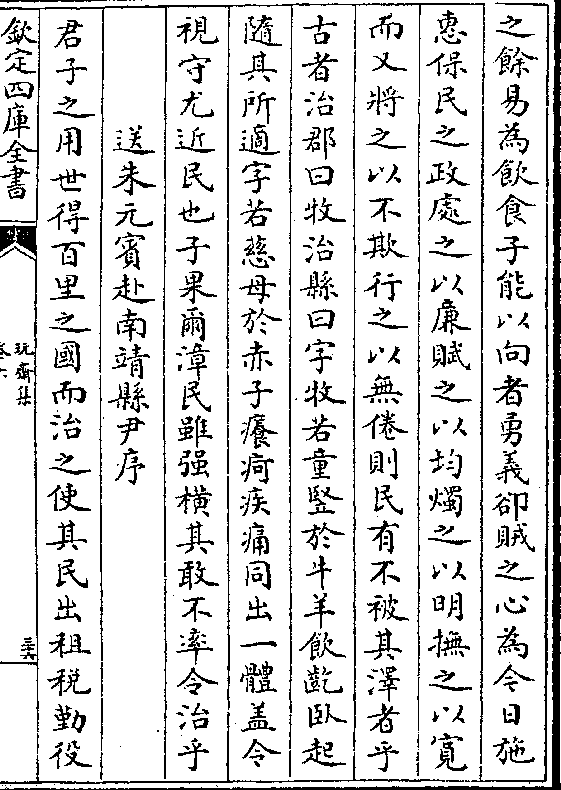 之餘易為飲食子能以向者勇義卻賊之心為今日施
惠保民之政處之以廉賦之以均燭之以明撫之以寛
而又將之以不欺行之以無倦則民有不被其澤者乎
古者治郡曰牧治縣曰字牧若童豎於牛羊飲齕臥起
隨其所適字若慈母於赤子癢疴疾痛同出一體盖令
視守尤近民也子果爾漳民雖强橫其敢不率令治乎
送朱元賓赴南靖縣尹序
君子之用世得百里之國而治之使其民出租税勤役
欽定四庫全書
玩齋集
卷六
三六